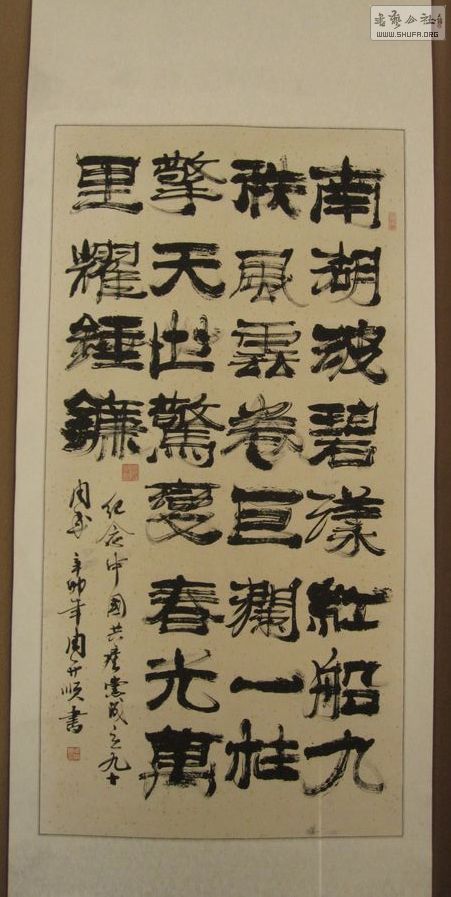 書藝公社
WWW.SHUFA.ORG
南湖波碧漾紅船九
秩風雲卷巨瀾一柱
擎天世驚春光萬
里耀錘鐮
纪念中國共產黨成立九十
周年 辛卯年周开順書